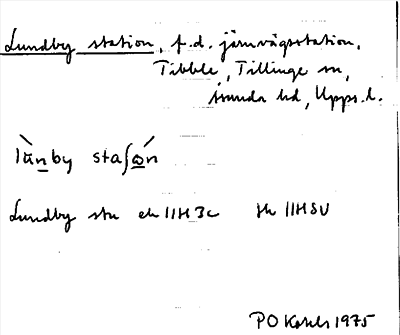 Lundby station, f.d. järnvägsstation,
Tibble, Tillinge sn,
Åsunda hd, Upps. l.
lùnby staʃón
Lundby stn ek 11H3c hk 11HSV
P O 1975